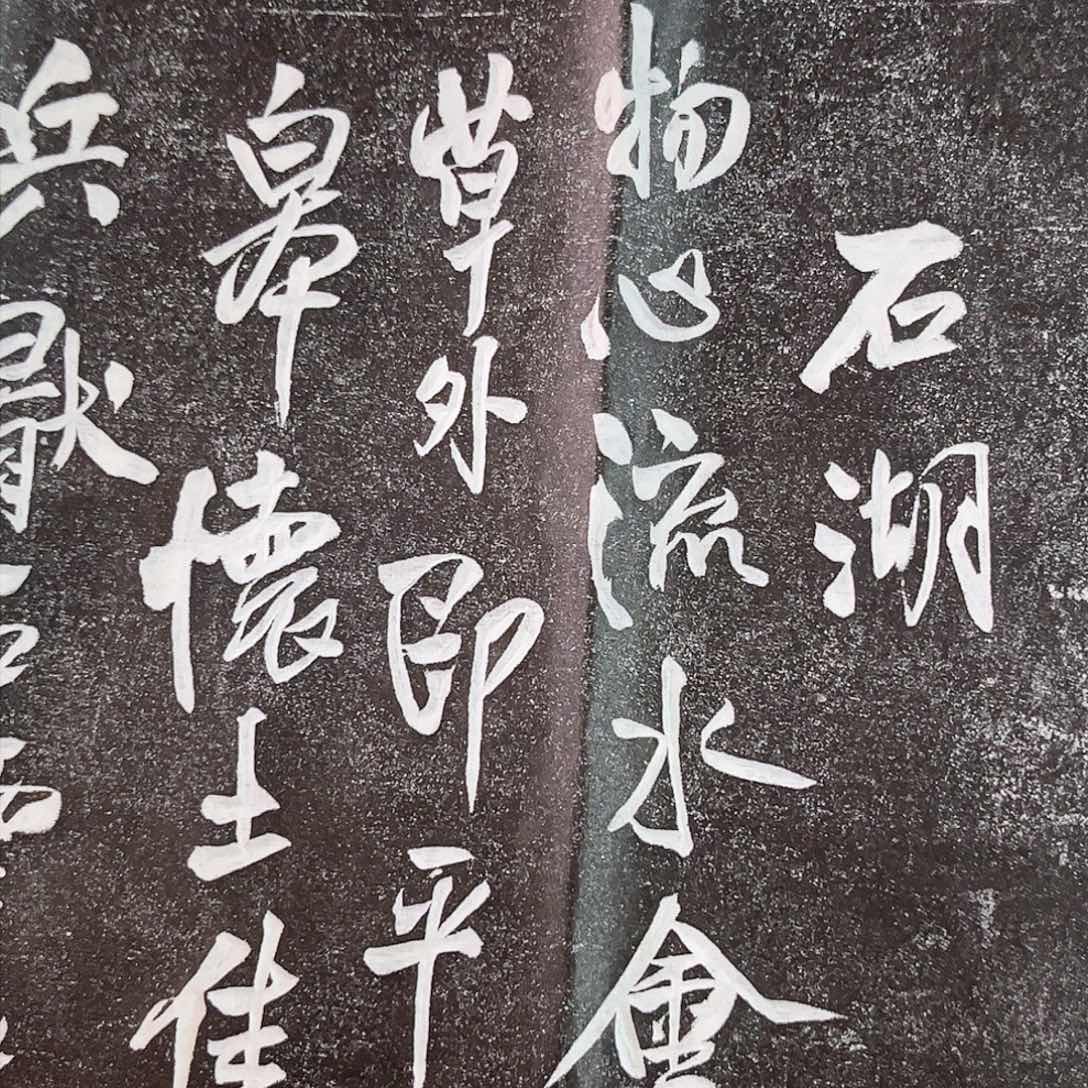 石湖
物心流水會
草外即平
皋懷土佳
兵獸